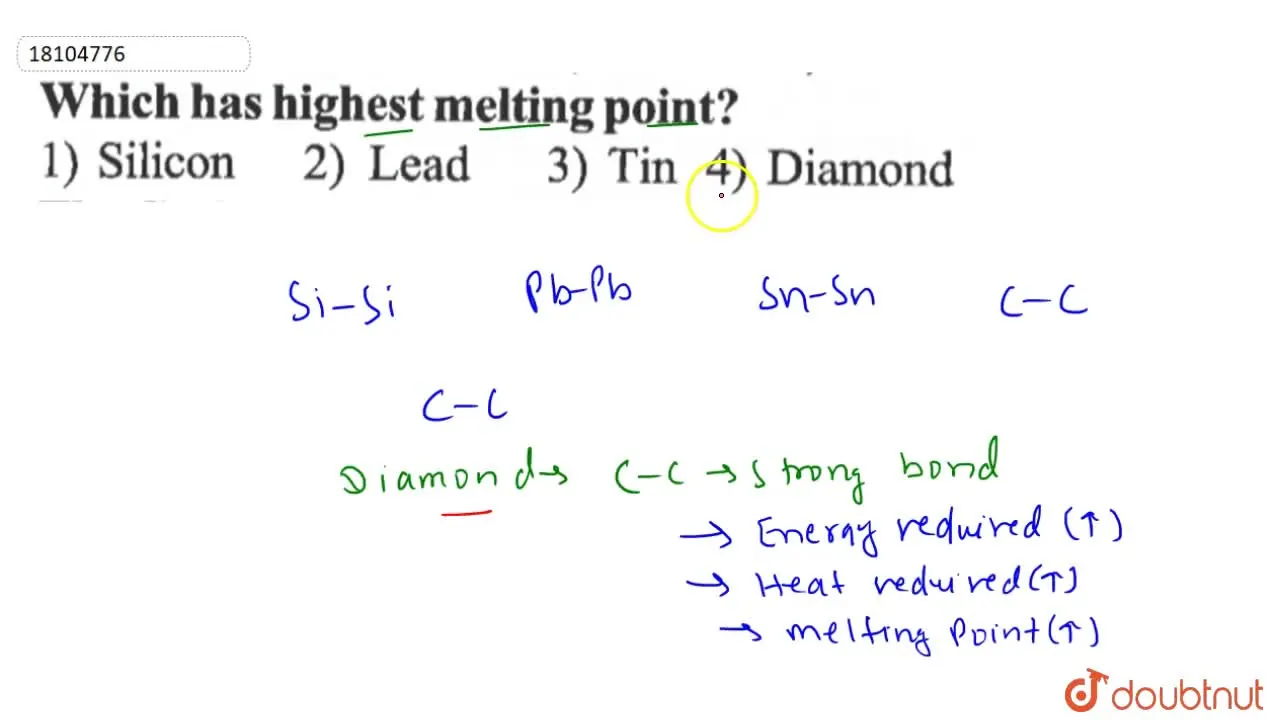 18104776
Which has highest melting point?
1) Silicon 2) Lead 3) Tin 4) Diamond
Si-Si Pb-Pb Sn-Sn C-C
C-C
Diamond→ C-C → strong bond
→ Energy required (↑)
→ Heat required (↑)
→ melting point (↑)
doubtnut